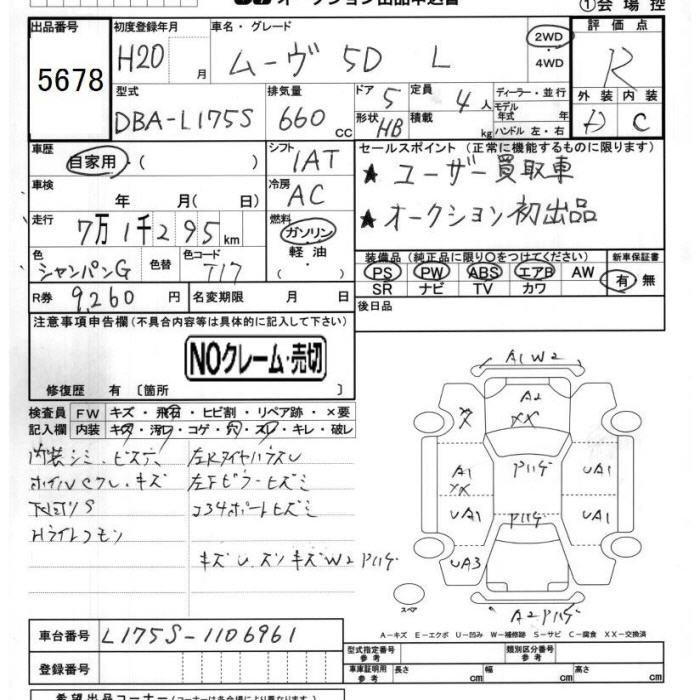 オークション出品申込書
①会場控
出品番号
5678
初度登録年月
H20 月
車名・グレード
ムーヴ 5D L
2WD
・4WD
評価点
R
型式
DBA-L175S
排気量
660 cc
ドア 5
形状 HB
定員 4 人
積載 kg
ディーラー・並行
モデル年式 年式
ハンドル 左・右
外装 内装
D C
車歴
自家用・( )
シフト
IAT
セールスポイント (正常に機能するものに限ります)
★ ユーザー買取車
★ オークション初出品
車検
年 月( 日)
冷房
AC
走行
7万1千295km
燃料
ガソリン
軽油
・( )
色
シャンパンG
色替
色コード
T17
装備品 (純正品に限り○をつけてください)
PS PW ABS エアB AW
SR ナビ TV カワ
新車保証書
有・無
R券 9,260 円
名変期限 月 日
後日品
注意事項申告欄(不具合内容等は具体的に記入して下さい)
NOクレーム・売切
修復歴 有 〔箇所 〕
検査員記入欄
FW キズ・飛石・ヒビ割・リペア跡・×要
内装 キズ・汚レ・コゲ・穴・スレ・キレ・破レ
内装シミ・ビス穴
ホイルCクレ・キズ
下廻りS
Hライトクモリ
左Fピラーヒズミ
キズU.ズリキズW2 Pハゲ
A1W2
A2
XX
Pハゲ
A1
XX
UA1
Pハゲ
UA1
UA1
UA3
A2Pハゲ
スペア
A-キズ E-エクボ U-凹み W-補修跡 S-サビ C-腐食 XX-交換済
車台番号 L175S-1106961
登録番号
型式指定番号 参考
類別区分番号 参考
車庫証明用 参考 長さ cm 幅 cm 高さ cm
希望出品コーナー(コーナーは各会場により異なります)